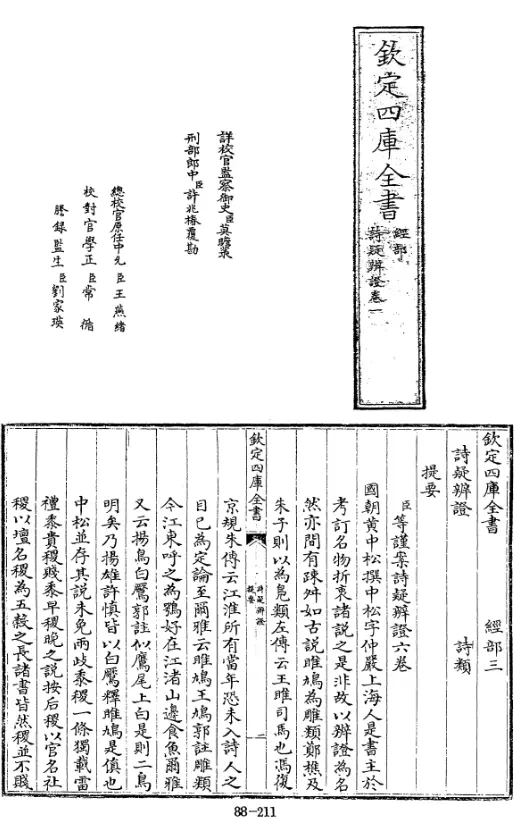 欽定四庫全書
經部
詩疑辨證卷一
詳校官監察御史臣莫瞻菉
刑部郎中臣許兆椿覆勘
總校官原任中允臣王燕緒
校對官學正臣常循
謄錄監生臣劉家瑛
欽定四庫全書
經部三
詩疑辨證
詩類
提要
臣等謹案詩疑辨證六卷
國朝黃中松撰中松字仲嚴上海人是書主於
考訂名物折衷諸説之是非故以辨證為名
然亦間有疎舛如古説雎鳩為鵰類鄭樵及
朱子則以為鳬類左傳云王雎司馬也馮復
欽定四庫全書
詩疑辨證
提要
一
京規朱傳云江淮所有當年恐未入詩人之
目已為定論至爾雅云雎鳩王鳩郭註雎類
今江東呼之為鶚好在江渚山邊食魚爾雅
又云揚鳥白鷢郭註似鷹尾上白是則二鳥
明矣乃揚雄許慎皆以白鷢釋雎鳩是慎也
中松並存其説未免兩歧黍稷一條獨載雷
禮黍貴稷賤黍早稷晚之説按后稷以官名社
稷以壇名稷為五穀之長諸書皆然稷並不賤
88-211